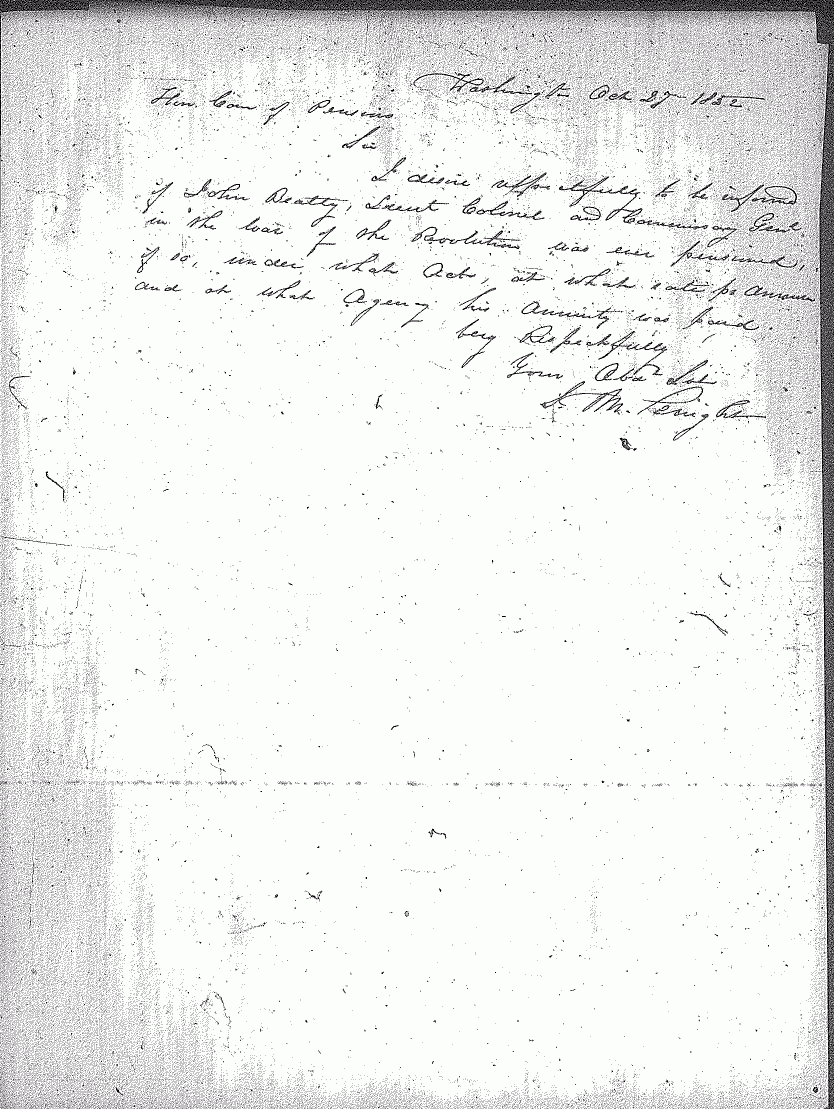 Washington Oct 27 1852
Hon. Com of Pensions
Sir
I desire respectfully to be informed
if John Beatty, Lieut Colonel and Commissary Genl.
in the War of the Revolution was ever pensioned,
if so, under what Act, at what rate pr annum
and at what Agency his annuity was paid.
Very Respectfully
Your Obdt Svt
M.